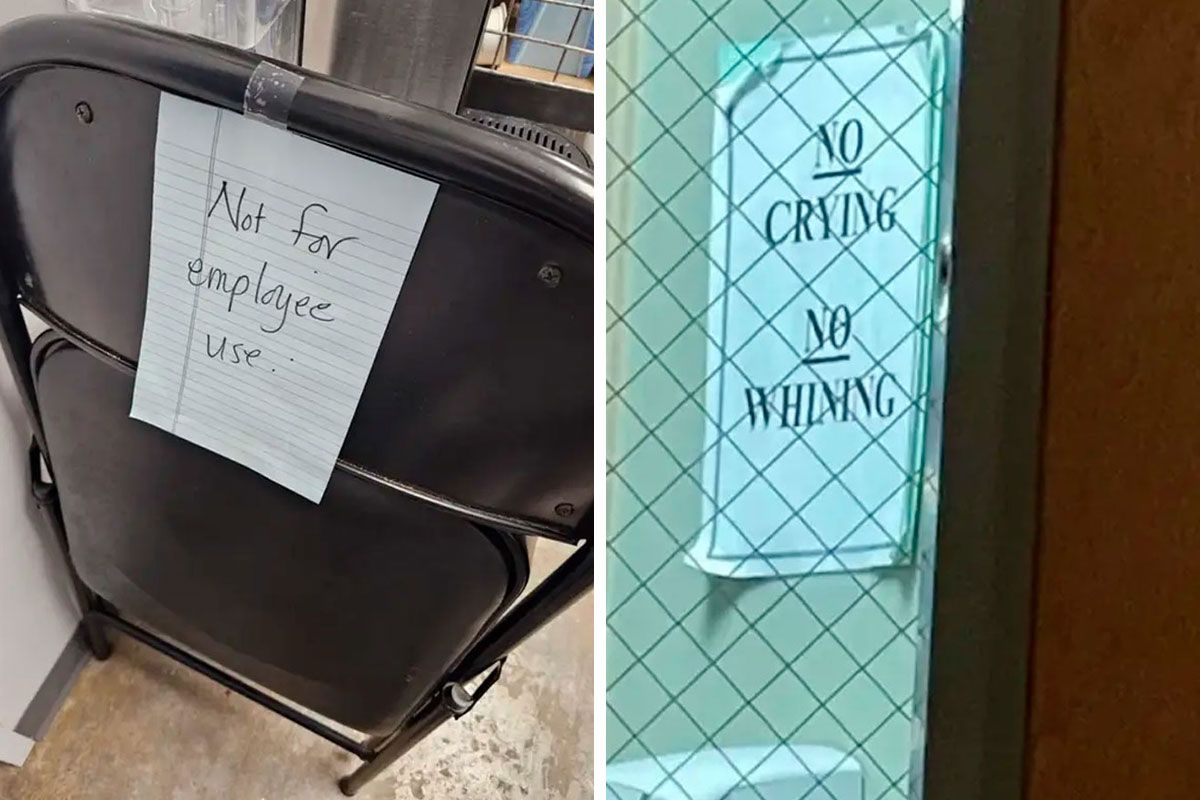 Not for
employee
use.
NO
CRYING
NO
WHINING